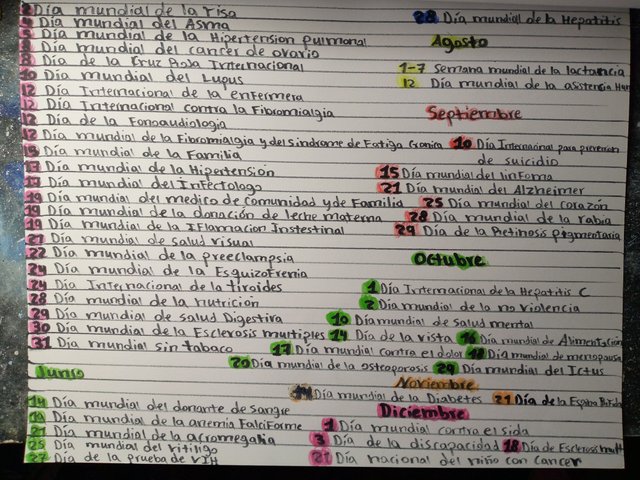 Día mundial de la risa
4 Día mundial del Asma
5 Día mundial de la Hipertension pulmonal
8 Día mundial del cancer de ovario
8 Día de la Cruz Roja Internacional
10 Día mundial del Lupus
12 Día Internacional de la enfermera
12 Día Internacional contra la Fibromialgia
12 Día de la Fonoaudiologia
12 Día mundial de la Fibromialgia y del sindrome de Fatiga Cronica
15 Día mundial de la Familia
17 Día mundial de la Hipertensión
17 Día mundial del Infectologo
19 Día mundial del medico de comunidad y de Familia
19 Día mundial de la donación de leche materna
19 Día mundial de la Iflamacion Instestinal
21 Día mundial de salud visual
22 Día mundial de la preeclampsia
24 Día mundial de la Esquizofrenia
24 Día Internacional de la tiroides
28 Día mundial de la nutrición
29 Día mundial de salud Digestiva
30 Día mundial de la Esclerosis multiples
31 Día mundial sin tabaco
Junio
14 Día mundial del donante de sangre
19 Día mundial de la anemia Falciforme
21 Día mundial de la acromegalia
25 Día mundial del vitiligo
27 Día de la prueba de VIH
28 Día mundial de la Hepatitis
Agosto
1-7 Semana mundial de la lactancia
12 Día mundial de la asistencia Hum
Septiembre
10 Día Internacional para prevencion
de suicidio
15 Día mundial del linfoma
21 Día mundial del Alzheimer
25 Día mundial del corazón
28 Día mundial de la rabia
29 Día de la Retinosis pigmentaria
Octubre
1 Día Internacional de la Hepatitis C
2 Día mundial de la no violencia
10 Día mundial de salud mental
14 Día de la vista 16 Día mundial de Alimentación
17 Día mundial contra el dolor 18 Día mundial de menopausa
20 Día mundial de la osteoporosis 29 Día mundial del Ictus
Noviembre
14 Día mundial de la Diabetes 21 Día de la Espina Bifida
Diciembre
1 Día mundial contra el sida
3 Día de la discapacidad 18 Día de Esclerosis mult
21 Día nacional del niño con cancer